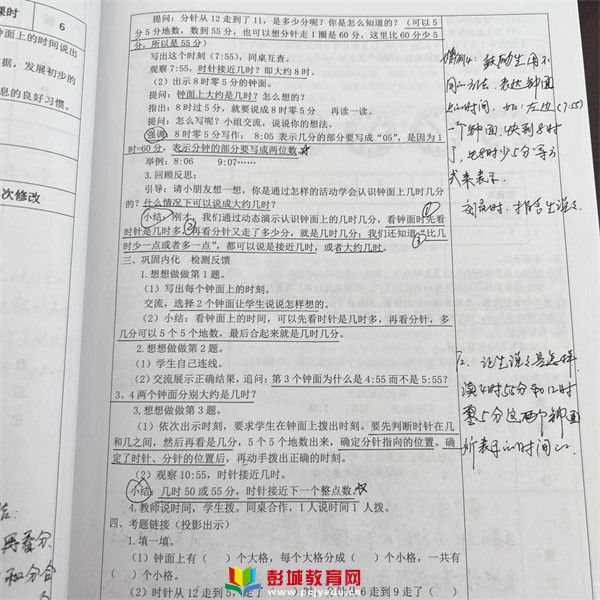 课时
6
钟面上的时间说出
据，发展初步的
息的良好习惯。
次修改
再看分
提问：分针从 12 走到了 11，是多少分呢？你是怎么知道的？（可以 5
分 5 分地数，数到 55 分，也可以想分针走 1 圈是 60 分，这里比 60 分少 5
分，所以是 55 分）
写出这个时刻（7:55），同桌互查。
观察 7:55，时针接近几时？即大约 8 时。
（2）出示 8 时零 5 分的钟面。
提问：钟面上大约是几时？怎么想的？
指出：8 时过 5 分，就要说成 8 时零 5 分    再读一读。
提问：怎么写呢？小组交流，说说你的想法。
强调：8 时零 5 分写作： 8:05 表示几分的部分要写成“05”，是因为 1
时=60 分，表示分钟的部分要写成两位数
举例：8:06    9:07……
3.回顾反思：
引导：请小朋友想一想，你是通过怎样的活动学会认识钟面上几时几分
的？什么情况下可以说成大约几时？
小结：刚才，我们通过动态演示认识钟面上的几时几分，看钟面时先看
时针是几时多，再看分针又走了多少分，就是几时几分；我们还知道“比几
时少一点或者多一点”，都可以说是接近几时，或者大约几时。
三、巩固内化    检测反馈
1.想想做做第 1 题。
（1）写出每个钟面上的时刻。
交流，选择 2 个钟面让学生说说怎样想的。
（2）小结：看钟面上的时间，可以先看时针是几时多，再看分针，多
几分可以 5 个 5 个地数，最后合起来就是几时几分。
2.想想做做第 2 题。
（1）学生自己连线。
（2）交流展示正确结果，追问：第 3 个钟面为什么是 4:55 而不是 5:55？
3、4 两个钟面分别大约是几时？
3.想想做做第 3 题。
（1）依次出示时刻，要求学生在钟面上拨出时刻。要先判断时针在几
和几之间，然后再看是几分，5 个 5 个地数出来，确定分针指向的位置。确
定了时针、分针的位置后，再动手拨出正确的时刻。
（2）观察 10:55，时针接近几时。
小结：几时 50 或 55 分，时针接近下一个整点数
4.教师说时间，学生拨。同桌合作，1 人说时间 1 人拨。
四、考题链接（投影出示）
1.填一填。
（1）钟面上有（    ）个大格，每个大格分成（    ）个小格，一共有
（    ）个小格。
（2）时针从 12 走到 5，走了
6 走到 9 走了（    ）
①
②
③
增加：鼓励生用不
同的方法，表达钟面
上的时间，如：左边（7:55）
一个钟面，快到8时
了，比8时少5分等方
式来表示。
交流时，指名生说
读4时55分和12时
零5分这两个钟面
所表示的时间
彭城教育网
www.pcjyedu.cn